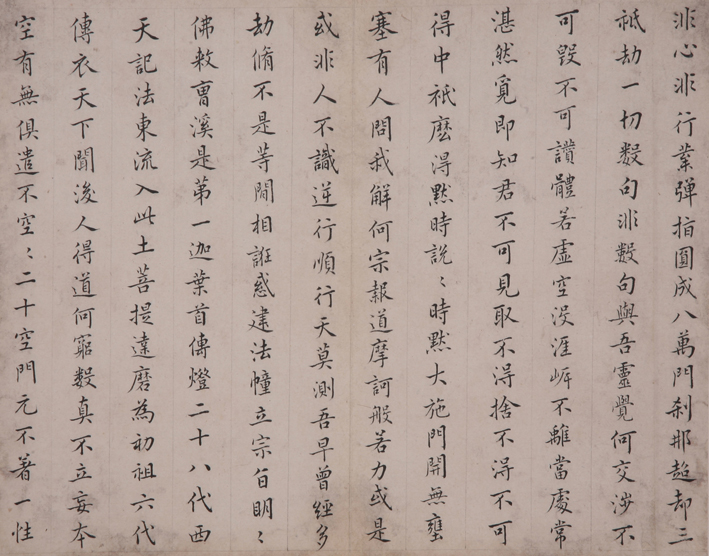 非心非行業彈指圓成八萬門剎那超却三
祇劫一切數句非數句與吾靈覺何交涉不
可毀不可讚體若虛空沒涯岸不離當處常
湛然覓即知君不可見取不得捨不得不可
得中祇麼得默時說〻時默大施門開無壅
塞有人問我解何宗報道摩訶般若力或是
或非人不識逆行順行天莫測吾早曾經多
劫脩不是等閒相誑惑建法幢立宗旨明〻
佛敕曹溪是第一迦葉首傳燈二十八代西
天記法東流入此土菩提達磨為初祖六代
傳衣天下聞後人得道何窮數真不立妄本
空有無俱遣不空〻二十空門元不著一性